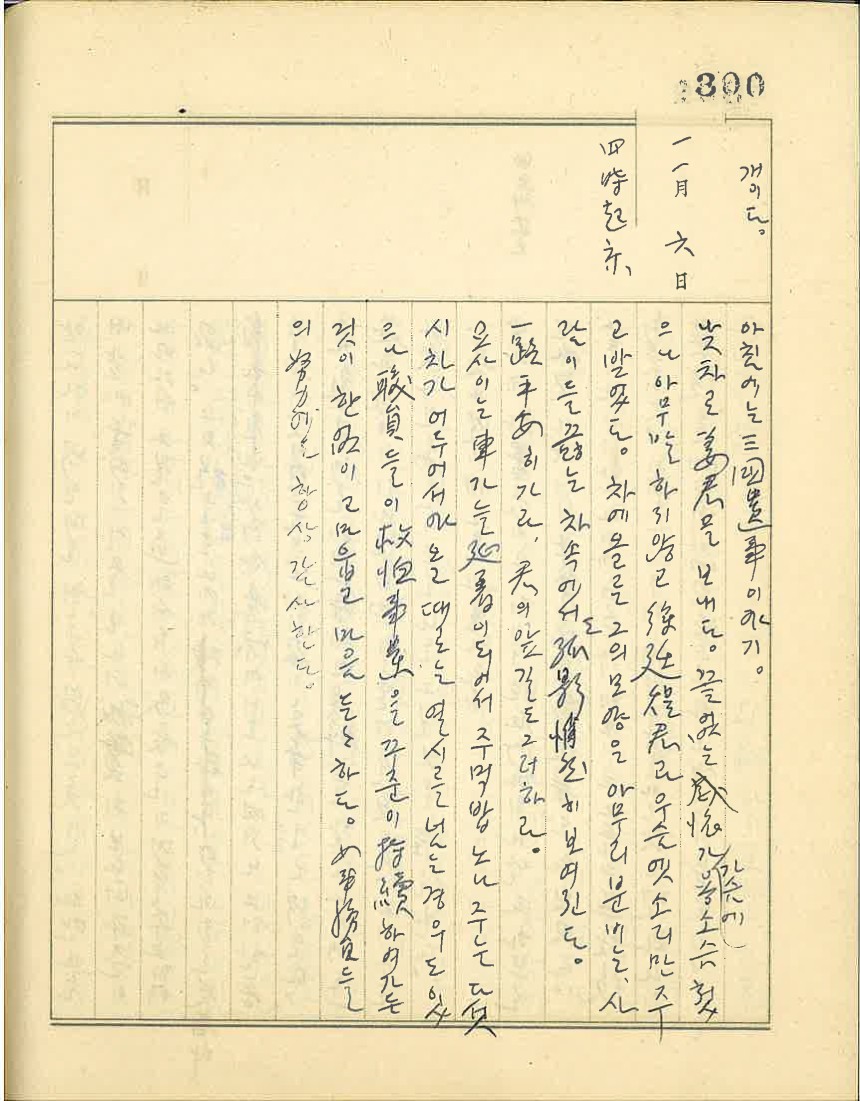 300
개이다。
一一月 六日
四時起床、
아침에는 三國遺事이야기。
낮차로 姜君을 보내다。끝없는 感懷가 가슴에 용소슴 쳤
으나 아무말 하지 않고 徐廷 君과 우슴엣 소리만 주
고 받었다。차에 올른 그의 모양은 아무리 분비는、사
람이 들끓는 차속에서도 孤影悄然히 보여진다。
一路平安히 가라、君의 앞길도 그러하라。
요사이는 車가 늘 延着이 되어서 주먹밥 노나 주는 다섯
시차가 어두어서야 올 때도 는 열시를 넘는 경우도 있
으나 職員들이 救恤事業을 꾸준이 持續하여 가는
것이 한없이 고마웁고 마음 든든하다。 事務員들
의 努力에는 항상 감사한다。